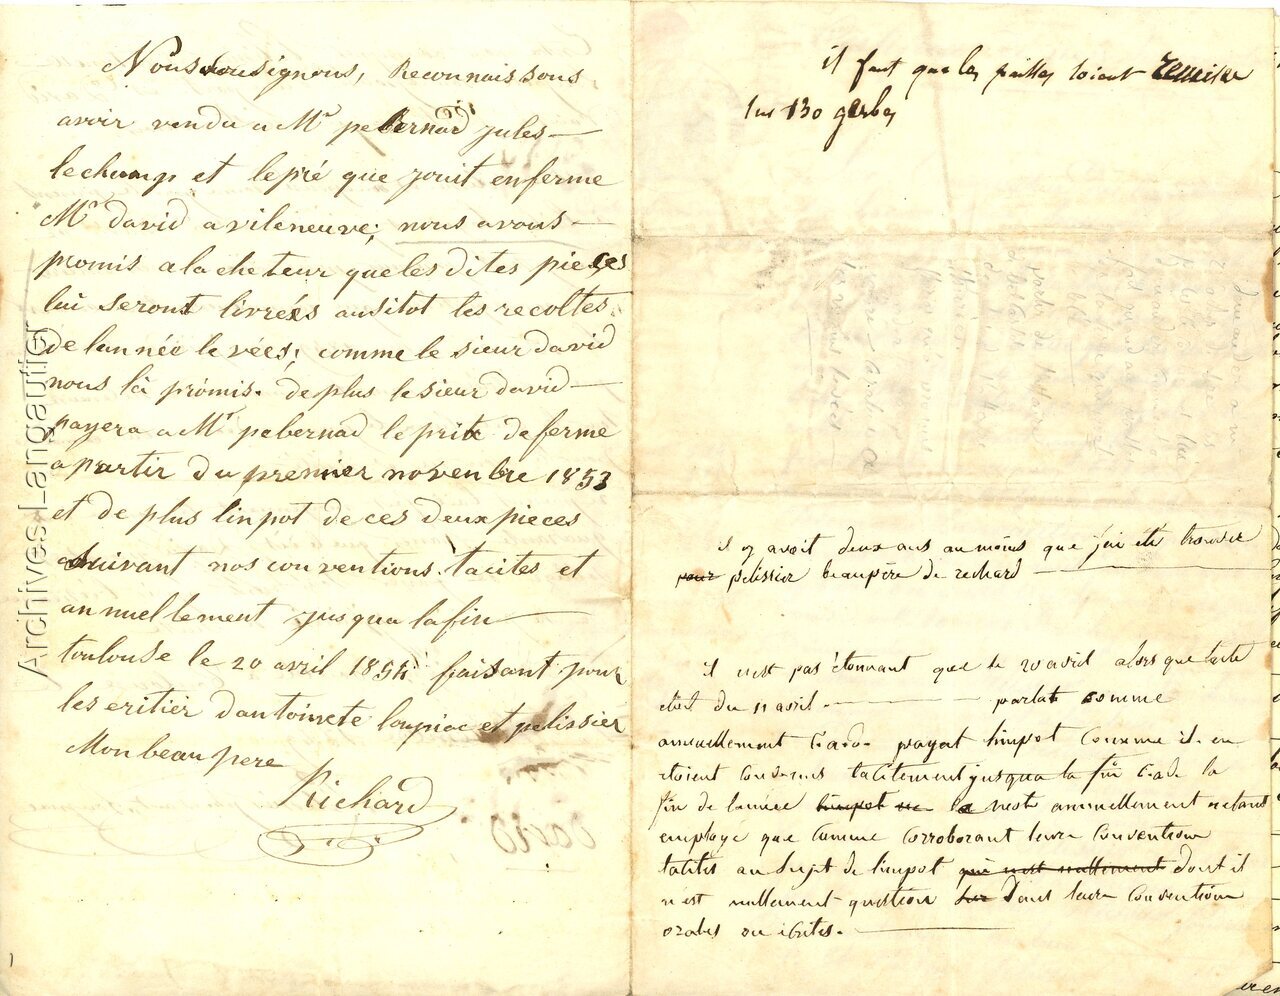 Nous sousignons, Reconnaissons
avoir vendu a Mr pebernad jules
lechamp et lepré que jouit enferme
Mr david a vileneuve; nous avons
promis a la cheteur que les dites pieces
lui seront livreés ausitot les recoltes
de lannée levées; comme le sieur david
nous là promis. de plus le sieur david
payera a Mr pebernad le prix de ferme
a partir du premier novenbre 1853
et de plus linpot de ces deux pieces
suivant nos conventions tacites et
annuellement jusqua la fin
toulouse le 20 avril 1854 faisant pour
les eritier dantoinete loupiac et pelissier
Mon beau pere
Richard
il faut que les pailles soient remise
sur 130 gerbes
il y avoit deux ans au moins que j'ai été trouver
pour pelissier beaupère de richard
il n'est pas étonnant que le 20 avril alors que lacte
étoit du 11 avril. parlat comme
annuellement payat limpot comme il en
étoient convenus tacitement jusqua la fin de la
fin de lannée limpot ne le mot annuellement netant
employé que comme corroborant leur convention
tacites au sujet de limpot qui nest nullement dont il
n est nullement question sur dans leur convention
orales ou écrites.
david
Archives Langautier